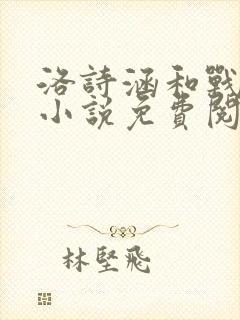 洛詩涵和戰
小說免費閱
林堅飛